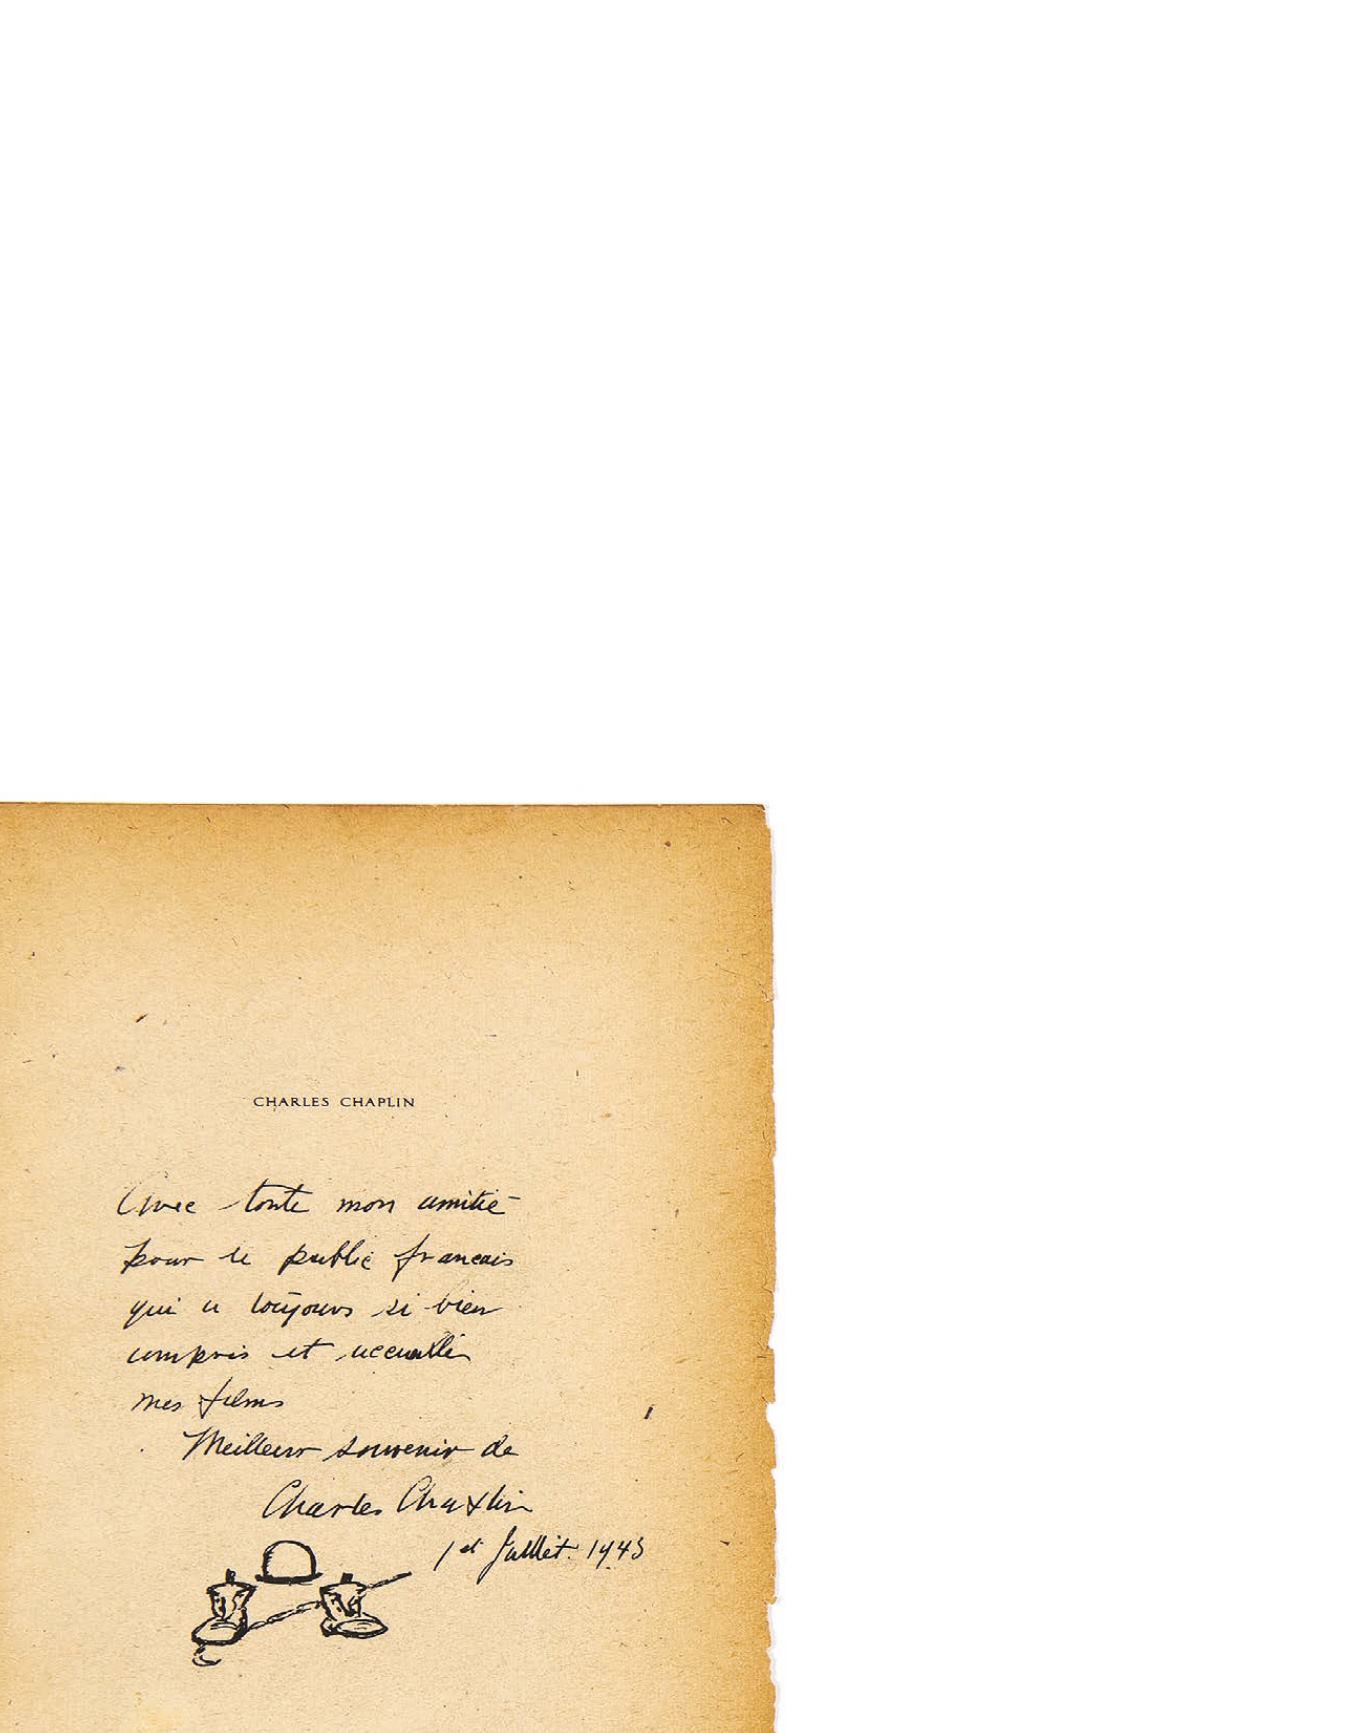 CHARLES CHAPLIN
Avec toute mon amitié
pour le public francais
qui a toujours si bien
compris et accueilli
mes films
Meilleur souvenir de
Charles Chaplin
1er Juillet. 1945